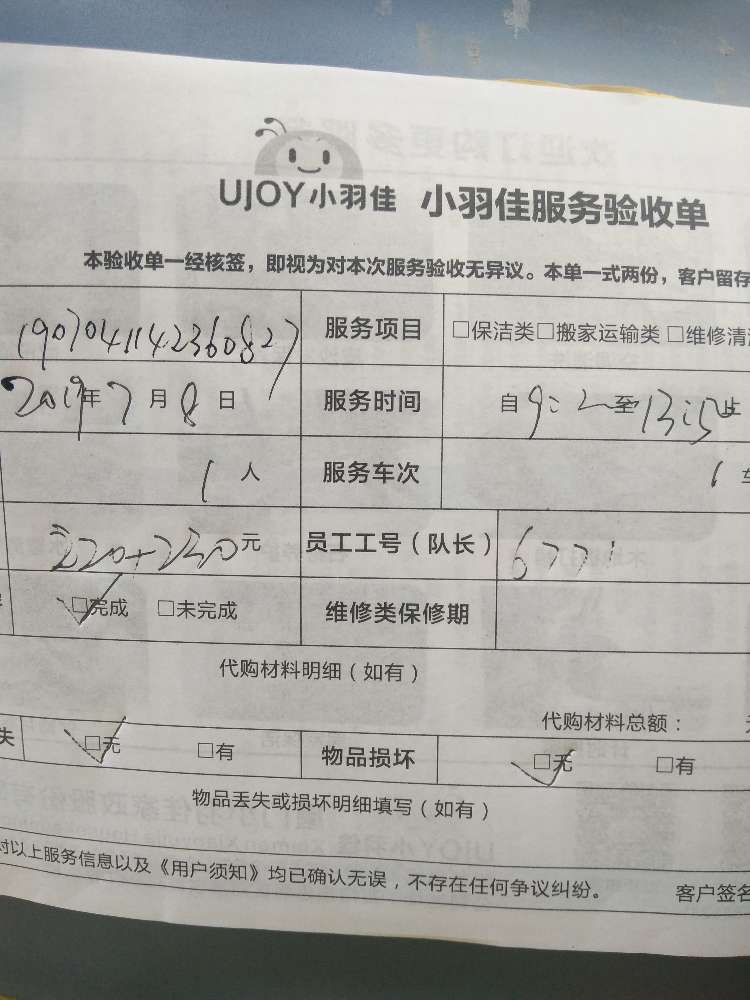 UJOY小羽佳 小羽佳服务验收单
本验收单一经核签，即视为对本次服务验收无异议。本单一式两份，客户留存
1907041142360827 服务项目 □保洁类□搬家运输类□维修清
2019年7月8日 服务时间 自9: 至13:15止
1人 服务车次 1
220+230元 员工工号（队长） 677
□完成 □未完成 维修类保修期
代购材料明细（如有）
代购材料总额：
失 □无 □有 物品损坏 □无 □有
物品丢失或损坏明细填写（如有）
对以上服务信息以及《用户须知》均已确认无误，不存在任何争议纠纷。 客户签名